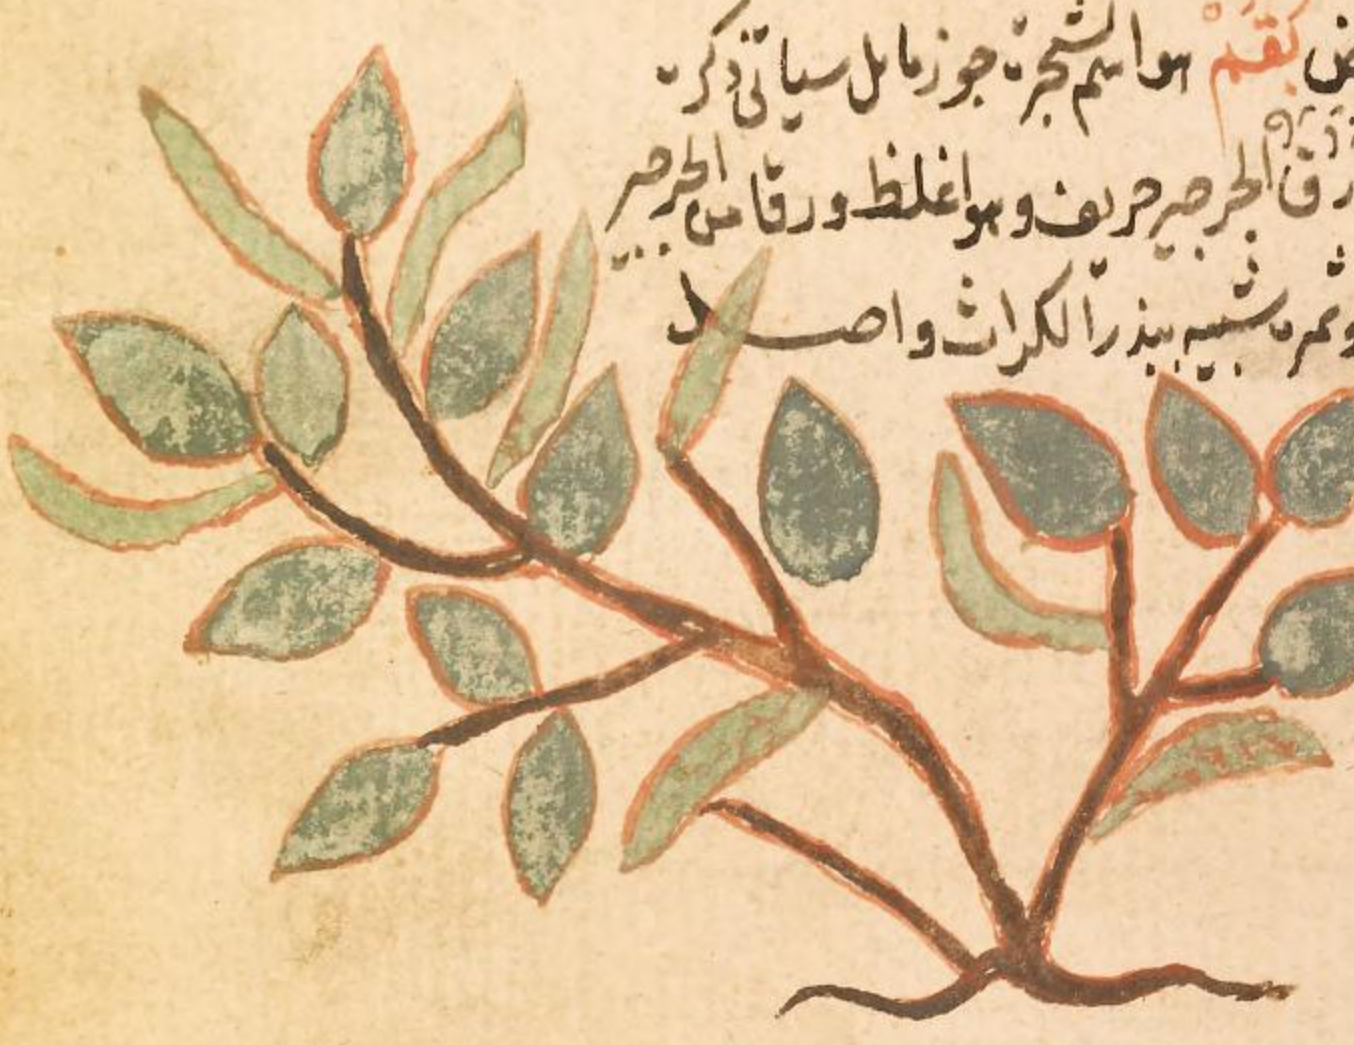 ض بقم هو اسم لشجرة جوز ماثل سياتي ذكره
ورق الجرجير حريف وهو اغلظ ورقا من الجرجير
وثمره شبيه ببذر الكراث واصـــل